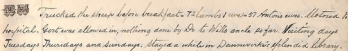 Trucked the sheep before breakfast. 72 lambs 1 ewe & 57 Antons ewes. Motored to
hospital. Gert was allowed in, nothing done by Dr to Wills ankle so far. Visiting days
Tuesdays Thursdays and Sundays. Stayed a while in Dannevirke splendid library.